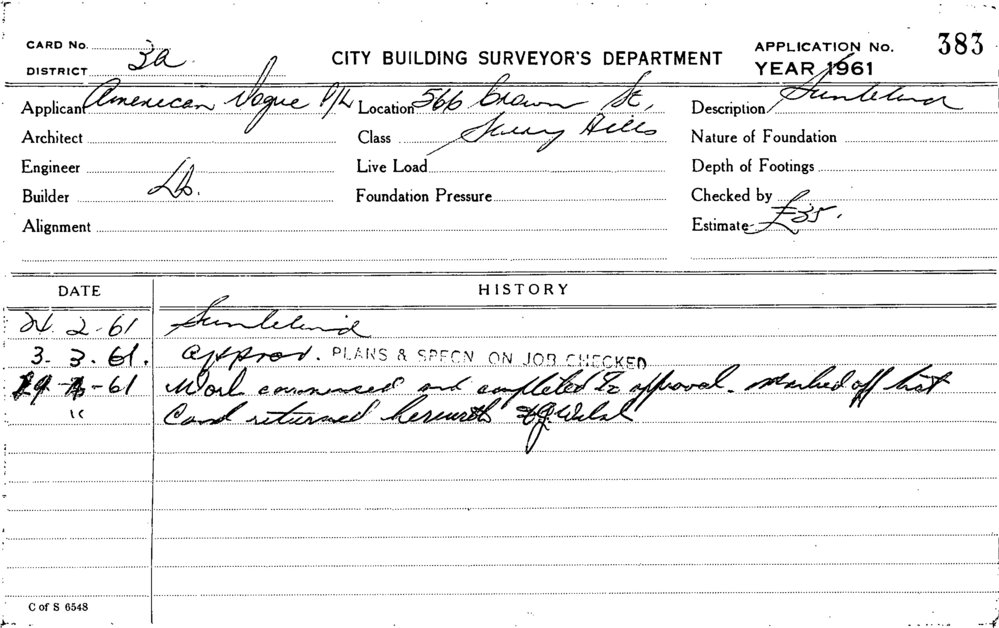 CARD No. CITY BUILDING SURVEYOR'S DEPARTMENT APPLICATION No. 383
DISTRICT 3a YEAR 1961
Applicant American Vogue P/L Location 566 Crown St, Description Sunblind
Architect Class Surry Hills Nature of Foundation
Engineer Live Load Depth of Footings
Builder Foundation Pressure Checked by
Alignment Estimate £35.
DATE HISTORY
2-61 Sunblind
3.3.61. Approv. PLANS & SPECN ON JOB CHECKED
-61 Work commenced and completed to approval. Marked off list
" Card returned herewith
C of S 6548